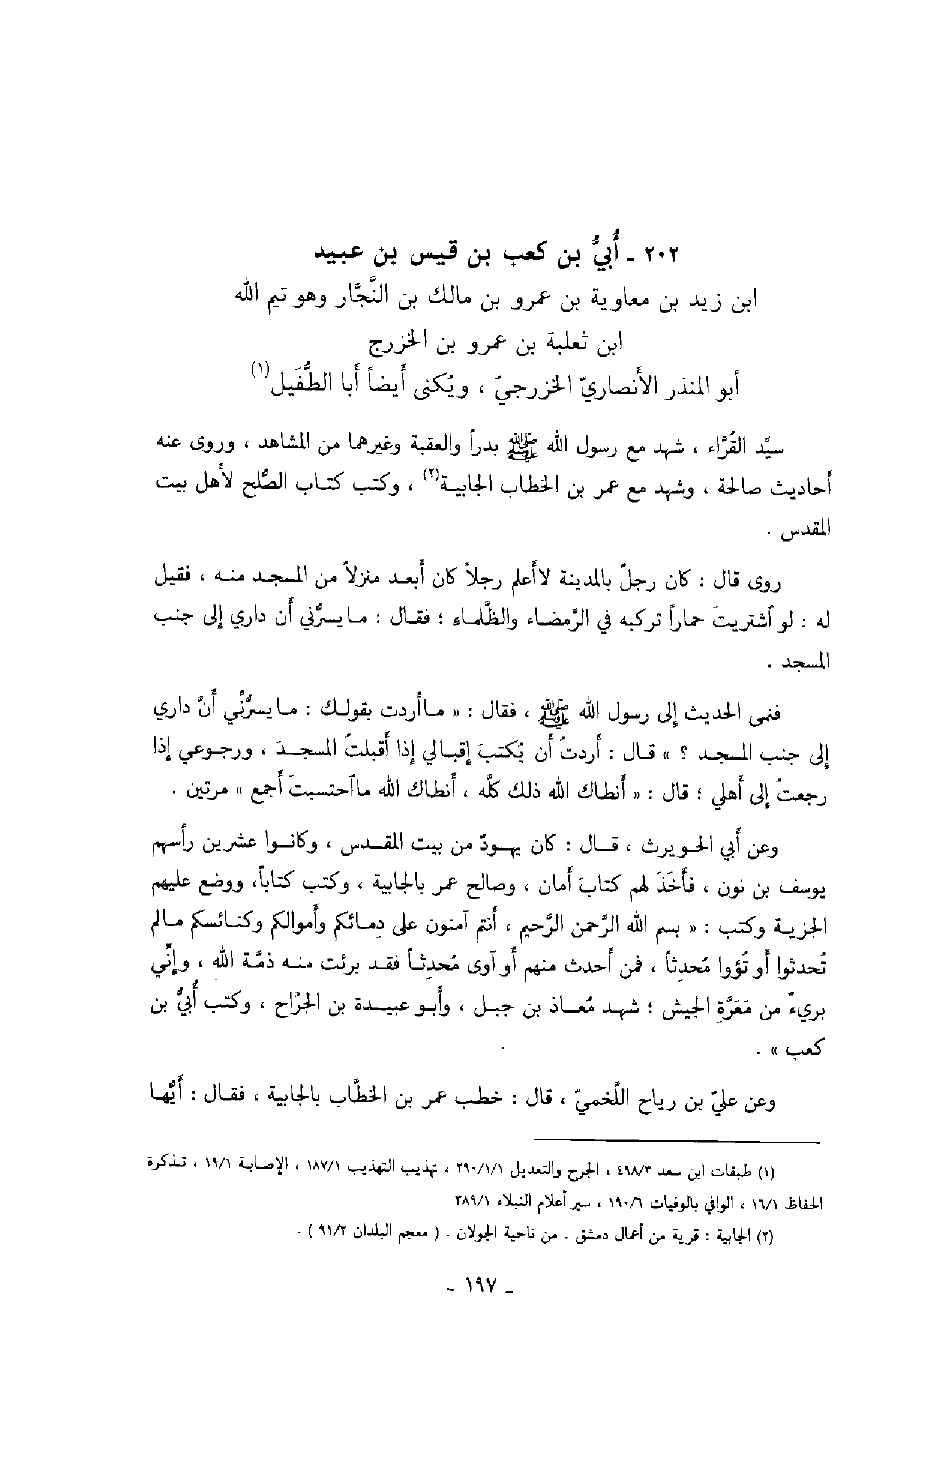 ٢٠٢ ـ أُبيُّ بن كعب بن قيس بن عبيد
ابن زيد بن معاوية بن عمرو بن مالك بن النَّجَّار وهو تيم الله
ابن ثعلبة بن عمرو بن الخزرج
أبو المنذر الأنصاريّ الخزرجيّ ، ويُكنى أيضاً أبا الطُّفَيل(١)
سيِّد القُرَّاء ، شهد مع رسول الله ﷺ بدراً والعقبة وغيرهما من المشاهد ، وروى عنه
أحاديث صالحة ، وشهد مع عمر بن الخطاب الجابية(٢) ، وكتب كتاب الصُّلح لأهل بيت
المقدس .
روى قال : كان رجلٌ بالمدينة لاأعلم رجلاً كان أبعد منزلاً من المسجد منه ، فقيل
له : لو آشتريتَ حماراً تركبه في الرَّمضاء والظَّلماء ؛ فقال : مايسرُّني أن داري إلى جنب
المسجد .
فنمى الحديث إلى رسول الله ﷺ ، فقال : « ماأردت بقولك : مايسرُّني أنَّ داري
إلى جنب المسجد ؟ » قال : أردتُ أن يُكتبَ إقبالي إذا أقبلتُ المسجدَ ، ورجوعي إذا
رجعتُ إلى أهلي ؛ قال : « أنطاك الله ذلك كلَّه ، أنطاك الله ماآحتسبتَ أجمع » مرتين .
وعن أبي الحويرث ، قال : كان يهودٌ من بيت المقدس ، وكانوا عشرين رأسهم
يوسف بن نون ، فأخذ لهم كتاب أمان ، وصالح عمر بالجابية ، وكتب كتاباً، ووضع عليهم
الجزية وكتب : « بسم الله الرَّحمن الرَّحيم ، أنتم آمنون على دمائكم وأموالكم وكنائسكم مالم
تُحدثوا أو تُؤوا مُحدثاً ، فمن أحدث منهم أو آوى مُحدثاً فقد برئت منه ذمَّة الله ، وإنِّي
بريءٌ من مَعَرَّةِ الجيش ؛ شهد مُعاذ بن جبل ، وأبو عبيدة بن الجراح ، وكتب أُبيُّ بن
كعب » .
وعن عليّ بن رياح اللَّخميّ ، قال : خطب عمر بن الخطَّاب بالجابية ، فقال : أيُّها
(١) طبقات ابن سعد ٤٩٨/٣ ، الجرح والتعديل ٢٩٠/١/١ ، تهذيب التهذيب ١٨٧/١ ، الإصابة ١٩/١ ، تذكرة
الحفاظ ١٦/١ ، الوافي بالوفيات ١٩٠/٦ ، سير أعلام النبلاء ٣٨٩/١
(٢) الجابية : قرية من أعمال دمشق . من ناحية الجولان . ( معجم البلدان ٩١/٢ ) .
ـ ١٩٧ ـ